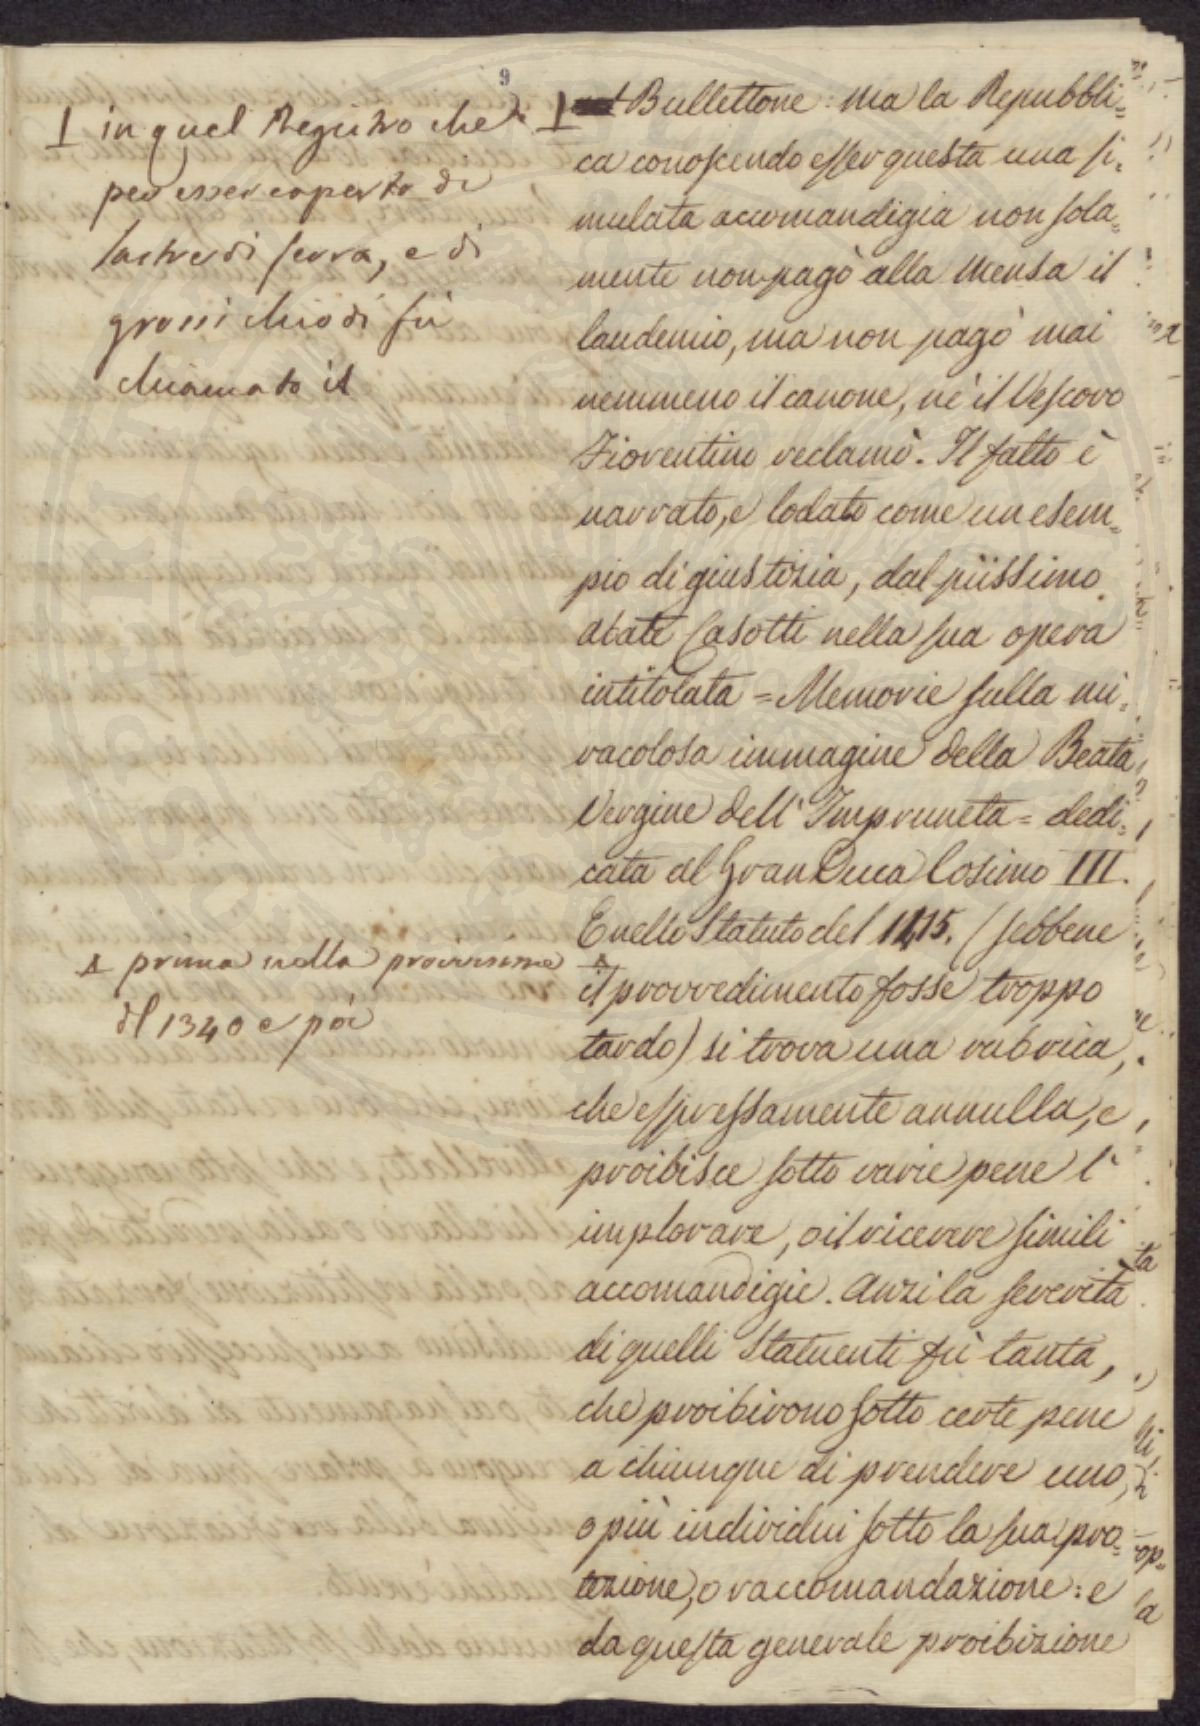 9
⊥ in quel Registro che
per esser coperto di
lastre di ferro, e di
grossi chiodi fù
chiamato il
⊥ Bullettone: ma la Repubbli=
ca conoscendo esser questa una si=
mulata accomandigia non sola=
mente non pagò alla Mensa il
laudemio, ma non pagò mai
nemmeno il canone, nè il Vescovo
Fiorentino reclamò. Il fatto è
narrato, e lodato come un esem=
pio di giustizia, dal piissimo
Abate Casotti nella sua opera
intitolata = Memorie sulla mi=
racolosa immagine della Beata
Vergine dell'Impruneta = dedi=
cata al Gran Duca Cosimo III.
prima nella provvisione
del 1340 e poi
E nello Statuto del 1415. (sebbene
il provvedimento fosse troppo
tardo) si trova una rubrica,
che espressamente annulla, e
proibisce sotto varie pene l'
implorare, o il ricevere simili
accomandigie. Anzi la severità
di quelli Statuenti fù tanta,
che proibirono sotto certe pene
a chiunque di prendere uno,
o più individui sotto la sua pro=
tezione, o raccomandazione: e
da questa generale proibizione